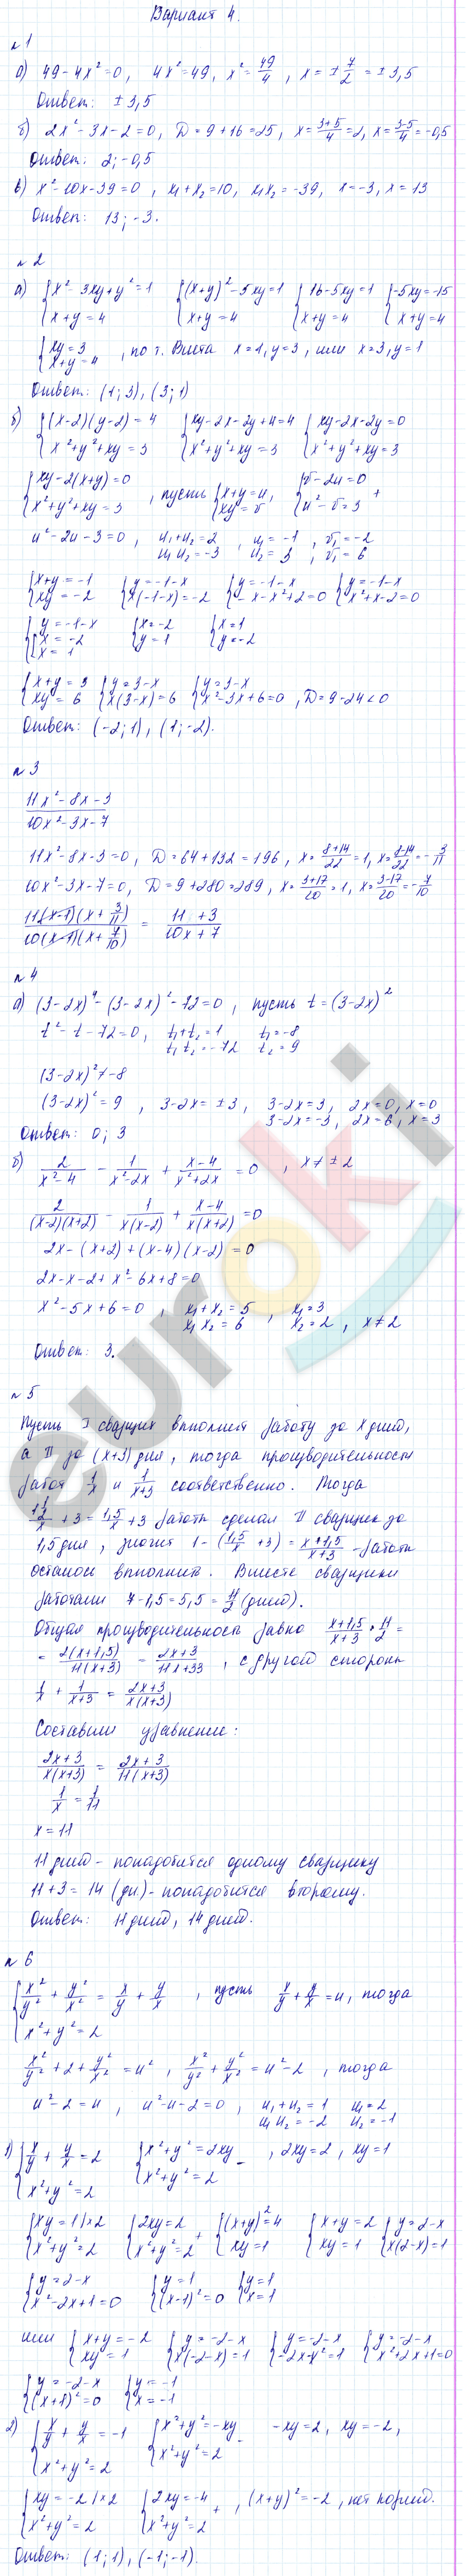 Вариант 4.
№1
а) 49-4x²=0, 4x²=49, x²=49/4, x=±7/2=±3,5
Ответ: ±3,5
б) 2x²-3x-2=0, D=9+16=25, x=(3+5)/4=2, x=(3-5)/4=-0,5
Ответ: 2; -0,5
в) x²-10x-39=0, x₁+x₂=10, x₁x₂=-39, x=-3, x=13
Ответ: 13; -3.
№2
а) {x²-3xy+y²=1 {(x+y)²-5xy=1 {16-5xy=1 {-5xy=-15
x+y=4 x+y=4 x+y=4 x+y=4
{xy=3
x+y=4, по т. Виета x=1, y=3, или x=3, y=1
Ответ: (1;3), (3;1)
б) {(x-2)(y-2)=4 {xy-2x-2y+4=4 {xy-2x-2y=0
x²+y²+xy=3 x²+y²+xy=3 x²+y²+xy=3
{xy-2(x+y)=0 , пусть {x+y=u, {v-2u=0 +
x²+y²+xy=3 xy=v u²-v=3
u²-2u-3=0, u₁+u₂=2 , u₁=-1 , v₁=-2
u₁u₂=-3 u₂=3 v₁=6
{x+y=-1 {y=-1-x {y=-1-x {y=-1-x
xy=-2 x(-1-x)=-2 -x-x²+2=0 x²+x-2=0
{y=-1-x {x=-2 {x=1
[x=-2 y=1 y=-2
x=1
{x+y=3 {y=3-x {y=3-x
xy=6 x(3-x)=6 x²-3x+6=0, D=9-24<0
Ответ: (-2;1), (1;-2).
№3
(11x²-8x-3)/(10x²-3x-7)
11x²-8x-3=0, D=64+132=196, x=(8+14)/22=1, x=(8-14)/22=-3/11
10x²-3x-7=0, D=9+280=289, x=(3+17)/20=1, x=(3-17)/20=-7/10
11(x-1)(x+3/11)/10(x-1)(x+7/10) = (11+3)/(10x+7)
№4
а) (3-2x)⁴-(3-2x)²-72=0, пусть t=(3-2x)²
t²-t-72=0, t₁+t₂=1 t₁=-8
t₁t₂=-72 t₂=9
(3-2x)²≠-8
(3-2x)²=9, 3-2x=±3, 3-2x=3, 2x=0, x=0
3-2x=-3, 2x=6, x=3
Ответ: 0; 3
б) 2/(x²-4) - 1/(x²-2x) + (x-4)/(x²+2x) = 0, x≠±2
2/((x-2)(x+2)) - 1/(x(x-2)) + (x-4)/(x(x+2)) = 0
2x-(x+2)+(x-4)(x-2)=0
2x-x-2+x²-6x+8=0
x²-5x+6=0, x₁+x₂=5 , x₁=3
x₁x₂=6 x₂=2, x≠2
Ответ: 3.
№5
Пусть I сварщик выполнит работу за x дней,
а II за (x+3) дня, тогда производительность
работ 1/x и 1/(x+3) соответственно. Тогда
+3 = 1,5/x+3 работы сделал II сварщик за
1,5 дня, значит 1-(1,5/x+3)=(x+1,5)/(x+3) - работы
осталось выполнить. Вместе сварщики
работали 7-1,5=5,5=11/2 (дней).
Общая производительность равна (x+1,5)/(x+3) : 11/2 =
= 2(x+1,5)/11(x+3) = (2x+3)/(11x+33), с другой стороны
1/x + 1/(x+3) = (2x+3)/x(x+3)
Составим уравнение:
(2x+3)/x(x+3) = (2x+3)/11(x+3)
1/x = 1/11
x=11
11 дней - понадобится одному сварщику
11+3=14 (дн.) - понадобится второму.
Ответ: 11 дней, 14 дней.
№6
{x²/y²+y²/x²=x/y+y/x , пусть x/y+y/x=u, тогда
x²+y²=2
x²/y²+2+y²/x²=u², x²/y²+y²/x²=u²-2, тогда
u²-2=u, u²-u-2=0, u₁+u₂=1 u₁=2
u₁u₂=-2 u₂=-1
1) {x/y+y/x=2 {x²+y²=2xy - , 2xy=2, xy=1
x²+y²=2 x²+y²=2
{xy=1|×2 {2xy=2 + {(x+y)²=4 {x+y=2 {y=2-x
x²+y²=2 x²+y²=2 xy=1 xy=1 x(2-x)=1
{y=2-x {y=1 {y=1
x²-2x+1=0 (x-1)²=0 x=1
или {x+y=-2 {y=-2-x {y=-2-x {y=-2-x
xy=1 x(-2-x)=1 -2x-x²=1 x²+2x+1=0
{y=-2-x {y=-1
(x+1)²=0 x=-1
2) {x/y+y/x=-1 {x²+y²=-xy - -xy=2, xy=-2,
x²+y²=2 x²+y²=2
{xy=-2|×2 {2xy=-4 + , (x+y)²=-2, нет корней.
x²+y²=2 x²+y²=2
Ответ: (1;1), (-1;-1).
euroki